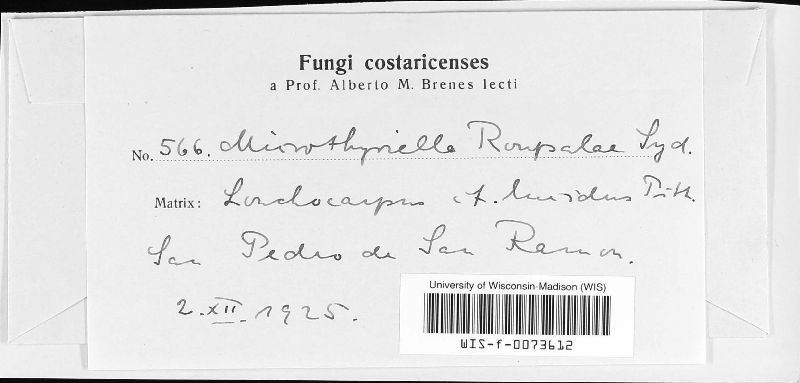 Fungi costaricenses
a Prof. Alberto M. Brenes lecti
No. 566. Microthyriella Roupalae Syd.
Matrix: Lonchocarpus cf. lucidus Pitt.
San Pedro de San Ramon.
2. XII. 1925.
University of Wisconsin-Madison (WIS)
WIS-f-0073612